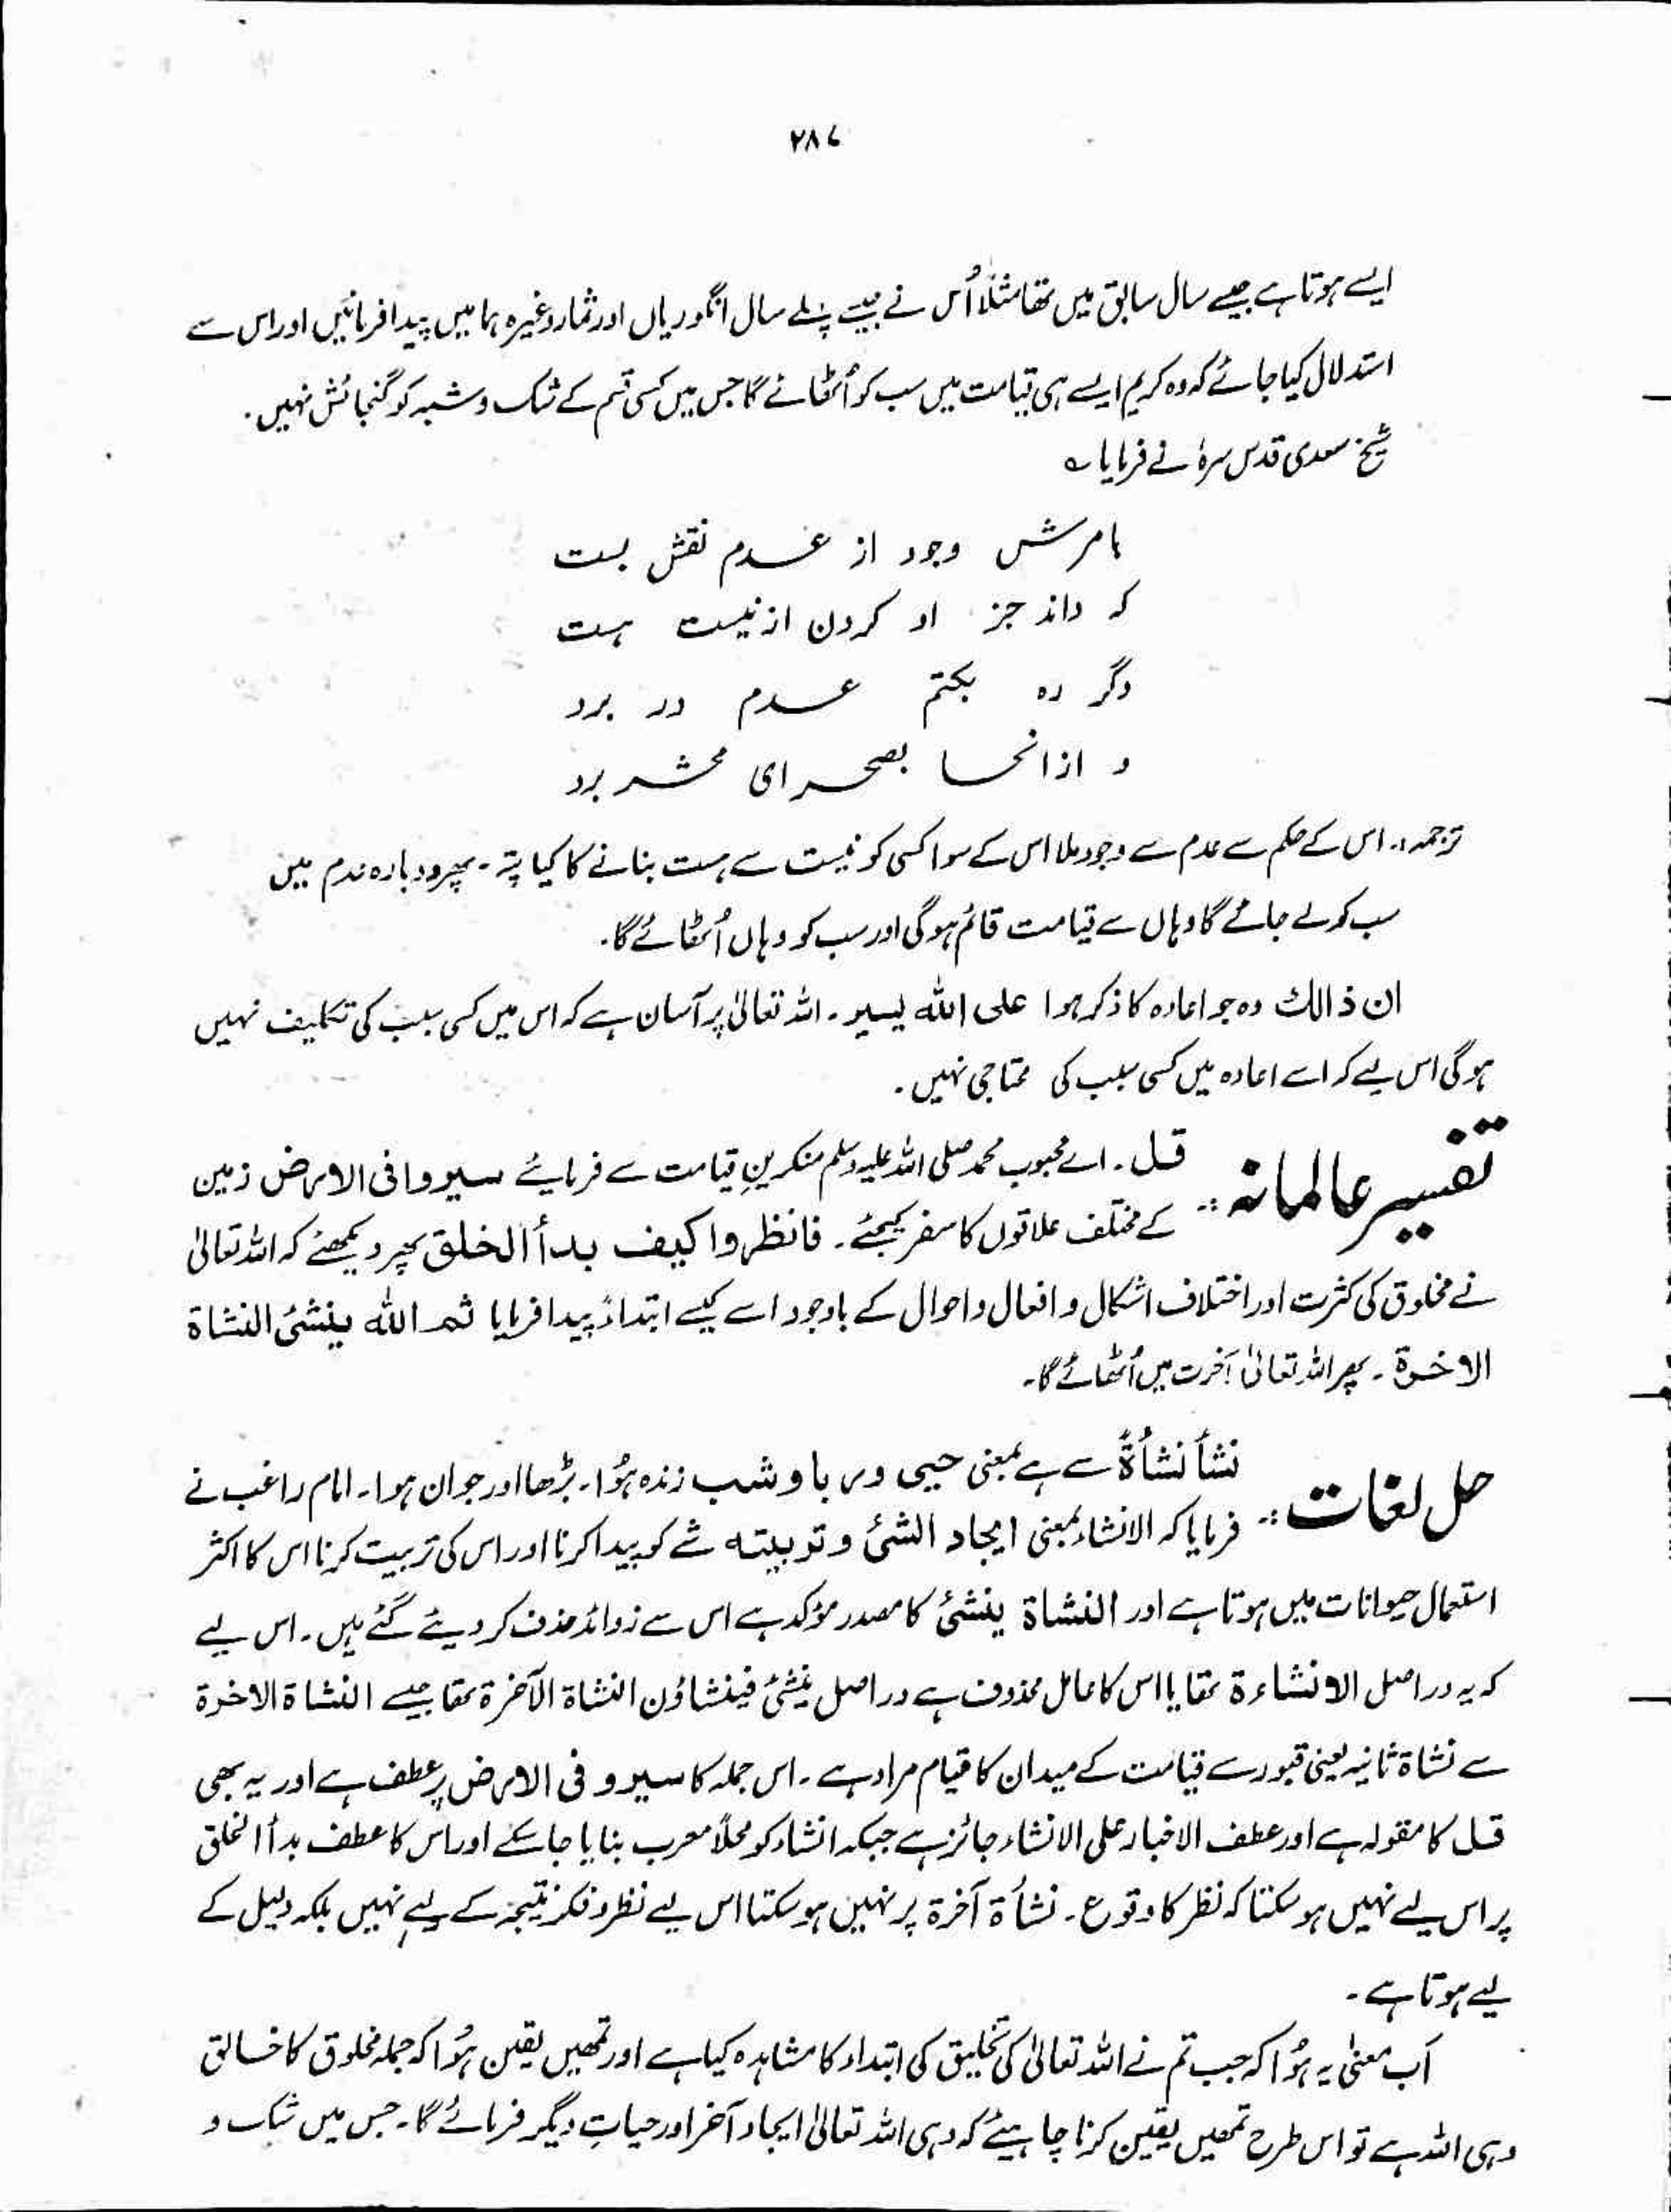 ۲۸۷
ایسے ہوتا ہے جیسے سال سابق میں تھا مثلاً اُس نے جیسے پہلے سال انگوریاں اور ثمار وغیرہ ہمیں پیدا فرمائیں اور اس سے
استدلال کیا جائے کہ وہ کریم ایسے ہی قیامت میں سب کو اُٹھائے گا جس میں کسی قسم کے شک و شبہ کو گنجائش نہیں۔
شیخ سعدی قدس سرہٗ نے فرمایا ؎
بامرش وجود از عدم نقش بست
کہ داند جز او کردن از نیست ہست
دگر رہ بکتم عدم در برد
و از انجا بصحرای محشر برد
ترجمہ:۔ اس کے حکم سے عدم سے وجود ملا اس کے سوا کسی کو نیست سے ہست بنانے کا کیا پتہ۔ پھر دوبارہ عدم میں
سب کو لے جائے گا وہاں سے قیامت قائم ہوگی اور سب کو وہاں اُٹھائے گا۔
ان ذالك وہ جو اعادہ کا ذکر ہوا علی اللّٰہ یسیر۔ اللہ تعالیٰ پر آسان ہے کہ اس میں کسی سبب کی تکلیف نہیں
ہوگی اس لیے کہ اسے اعادہ میں کسی سبب کی محتاجی نہیں۔
تفسیر عالمانہ:: قل۔ اے محبوب محمد صلی اللہ علیہ وسلم منکرینِ قیامت سے فرمایئے سیروا فی الارض زمین
کے مختلف علاقوں کا سفر کیجئے۔ فانظروا کیف بدأ الخلق پھر دیکھئے کہ اللہ تعالیٰ
نے مخلوق کی کثرت اور اختلاف اشکال و افعال و احوال کے باوجود اسے کیسے ابتداءً پیدا فرمایا ثم اللّٰہ ینشئ النشاة
الاخرة۔ پھر اللہ تعالیٰ آخرت میں اُٹھائے گا۔
حل لغات:: نشأ نشأةً سے ہے بمعنی حیی وربا وشب زندہ ہُوا۔ بڑھا اور جوان ہوا۔ امام راغب نے
فرمایا کہ الانشاء بمعنی ایجاد الشئ وتربیتہ شے کو پیدا کرنا اور اس کی تربیت کرنا اس کا اکثر
استعمال حیوانات میں ہوتا ہے اور النشاة ینشئ کا مصدر مؤکد ہے اس سے زوائد حذف کر دیئے گئے ہیں۔ اس لیے
کہ یہ دراصل الانشاءة تھا یا اس کا عامل محذوف ہے دراصل ینشئ فینشاؤن النشاة الآخرة تھا جیسے النشاة الاخرة
سے نشاة ثانیہ یعنی قبور سے قیامت کے میدان کا قیام مراد ہے۔ اس جملہ کا سیرو فی الارض پر عطف ہے اور یہ بھی
قل کا مقولہ ہے اور عطف الاخبار علی الانشاء جائز ہے جبکہ انشاء کو محلاً معرب بنایا جا سکے اور اس کا عطف بدأ الخلق
پر اس لیے نہیں ہو سکتا کہ نظر کا وقوع۔ نشأة آخرة پر نہیں ہو سکتا اس لیے نظر و فکر نتیجہ کے لیے نہیں بلکہ دلیل کے
لیے ہوتا ہے۔
اَب معنیٰ یہ ہُوا کہ جب تم نے اللہ تعالیٰ کی تخلیق کی ابتداء کا مشاہدہ کیا ہے اور تمھیں یقین ہُوا کہ جملہ مخلوق کا خالق
وہی اللہ ہے تو اس طرح تمھیں یقین کرنا چاہیئے کہ وہی اللہ تعالیٰ ایجاد آخر اور حیاتِ دیگر فرمائے گا۔ جس میں شک و